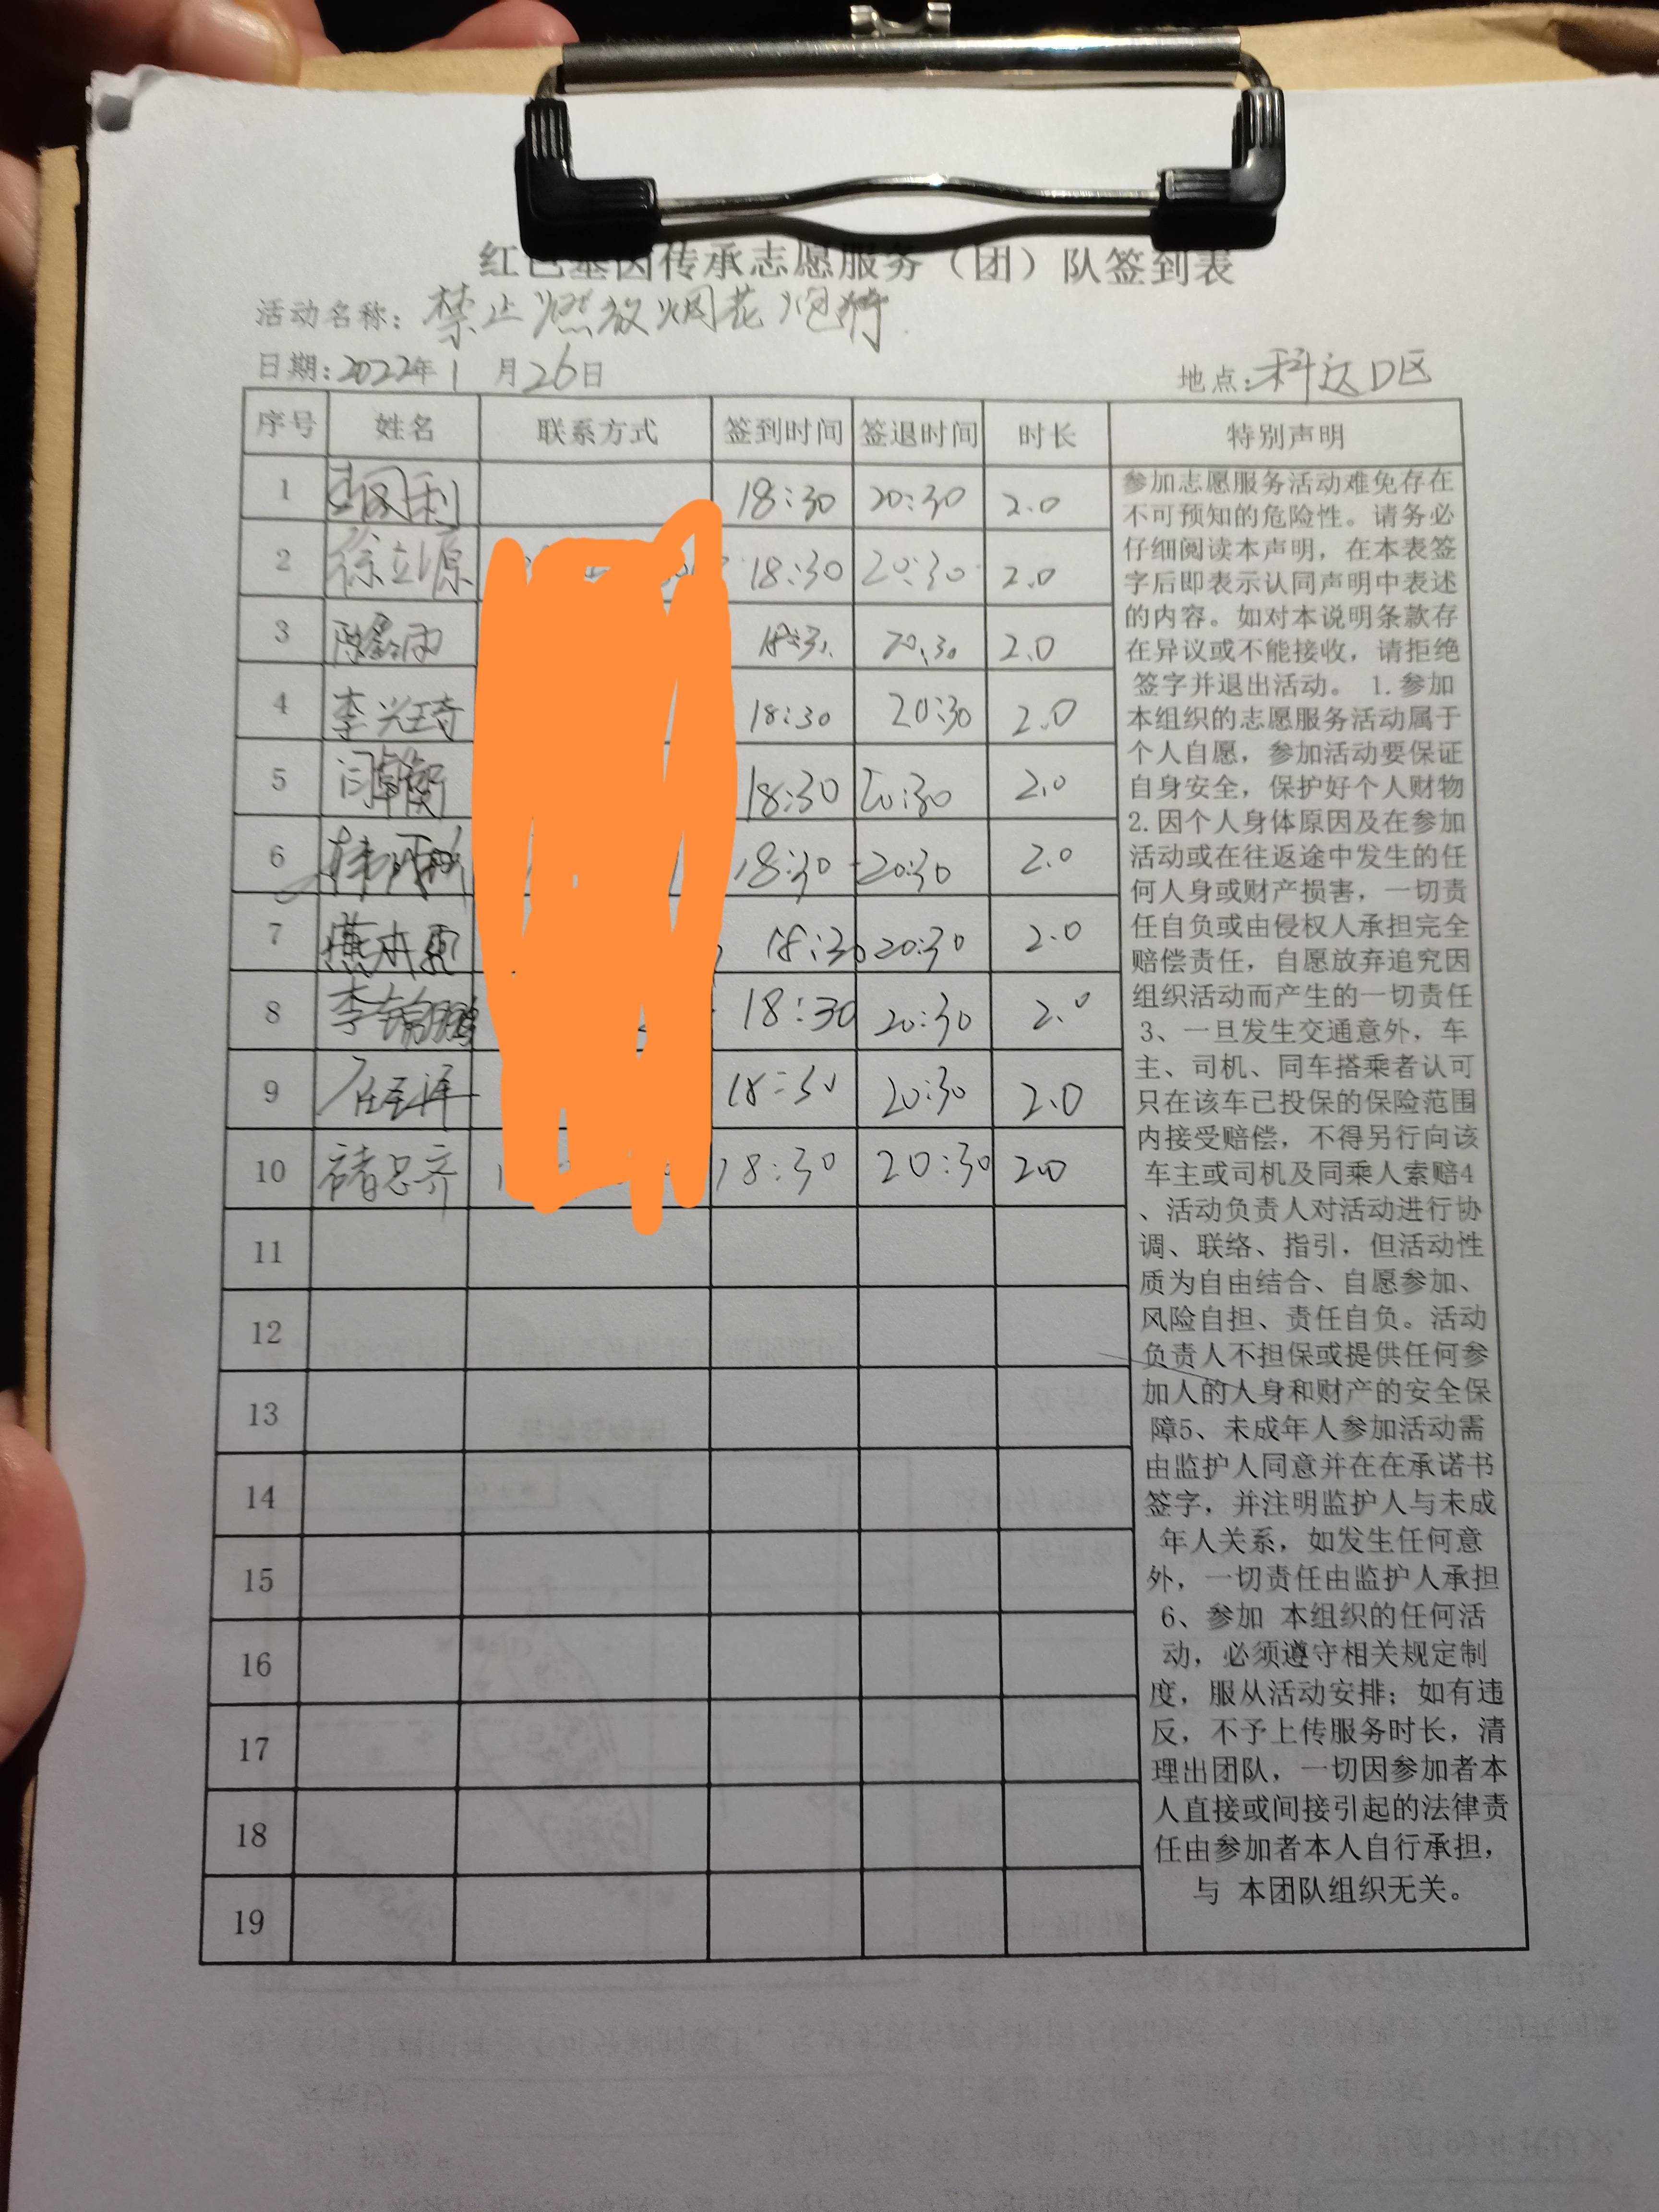 红色基因传承志愿服务（团）队签到表
活动名称：禁止燃放烟花炮竹
日期：2022年1月26日 地点：科达D区
序号 姓名 联系方式 签到时间 签退时间 时长 特别声明
1 18:30 20:30 2.0
2 徐立源 18:30 20:30 2.0
3 18:30 20:30 2.0
4 李兴琦 18:30 20:30 2.0
5 闫卓衡 18:30 20:30 2.0
6 18:30 20:30 2.0
7 18:30 20:30 2.0
8 李锦鹏 18:30 20:30 2.0
9 18:30 20:30 2.0
10 褚思齐 18:30 20:30 2.0
11
12
13
14
15
16
17
18
19
参加志愿服务活动难免存在
不可预知的危险性。请务必
仔细阅读本声明，在本表签
字后即表示认同声明中表述
的内容。如对本说明条款存
在异议或不能接收，请拒绝
签字并退出活动。 1.参加
本组织的志愿服务活动属于
个人自愿，参加活动要保证
自身安全，保护好个人财物
2.因个人身体原因及在参加
活动或在往返途中发生的任
何人身或财产损害，一切责
任自负或由侵权人承担完全
赔偿责任，自愿放弃追究因
组织活动而产生的一切责任
3、一旦发生交通意外，车
主、司机、同车搭乘者认可
只在该车已投保的保险范围
内接受赔偿，不得另行向该
车主或司机及同乘人索赔4
、活动负责人对活动进行协
调、联络、指引，但活动性
质为自由结合、自愿参加、
风险自担、责任自负。活动
负责人不担保或提供任何参
加人的人身和财产的安全保
障5、未成年人参加活动需
由监护人同意并在在承诺书
签字，并注明监护人与未成
年人关系，如发生任何意
外，一切责任由监护人承担
6、参加 本组织的任何活
动，必须遵守相关规定制
度，服从活动安排；如有违
反，不予上传服务时长，清
理出团队，一切因参加者本
人直接或间接引起的法律责
任由参加者本人自行承担，
与 本团队组织无关。